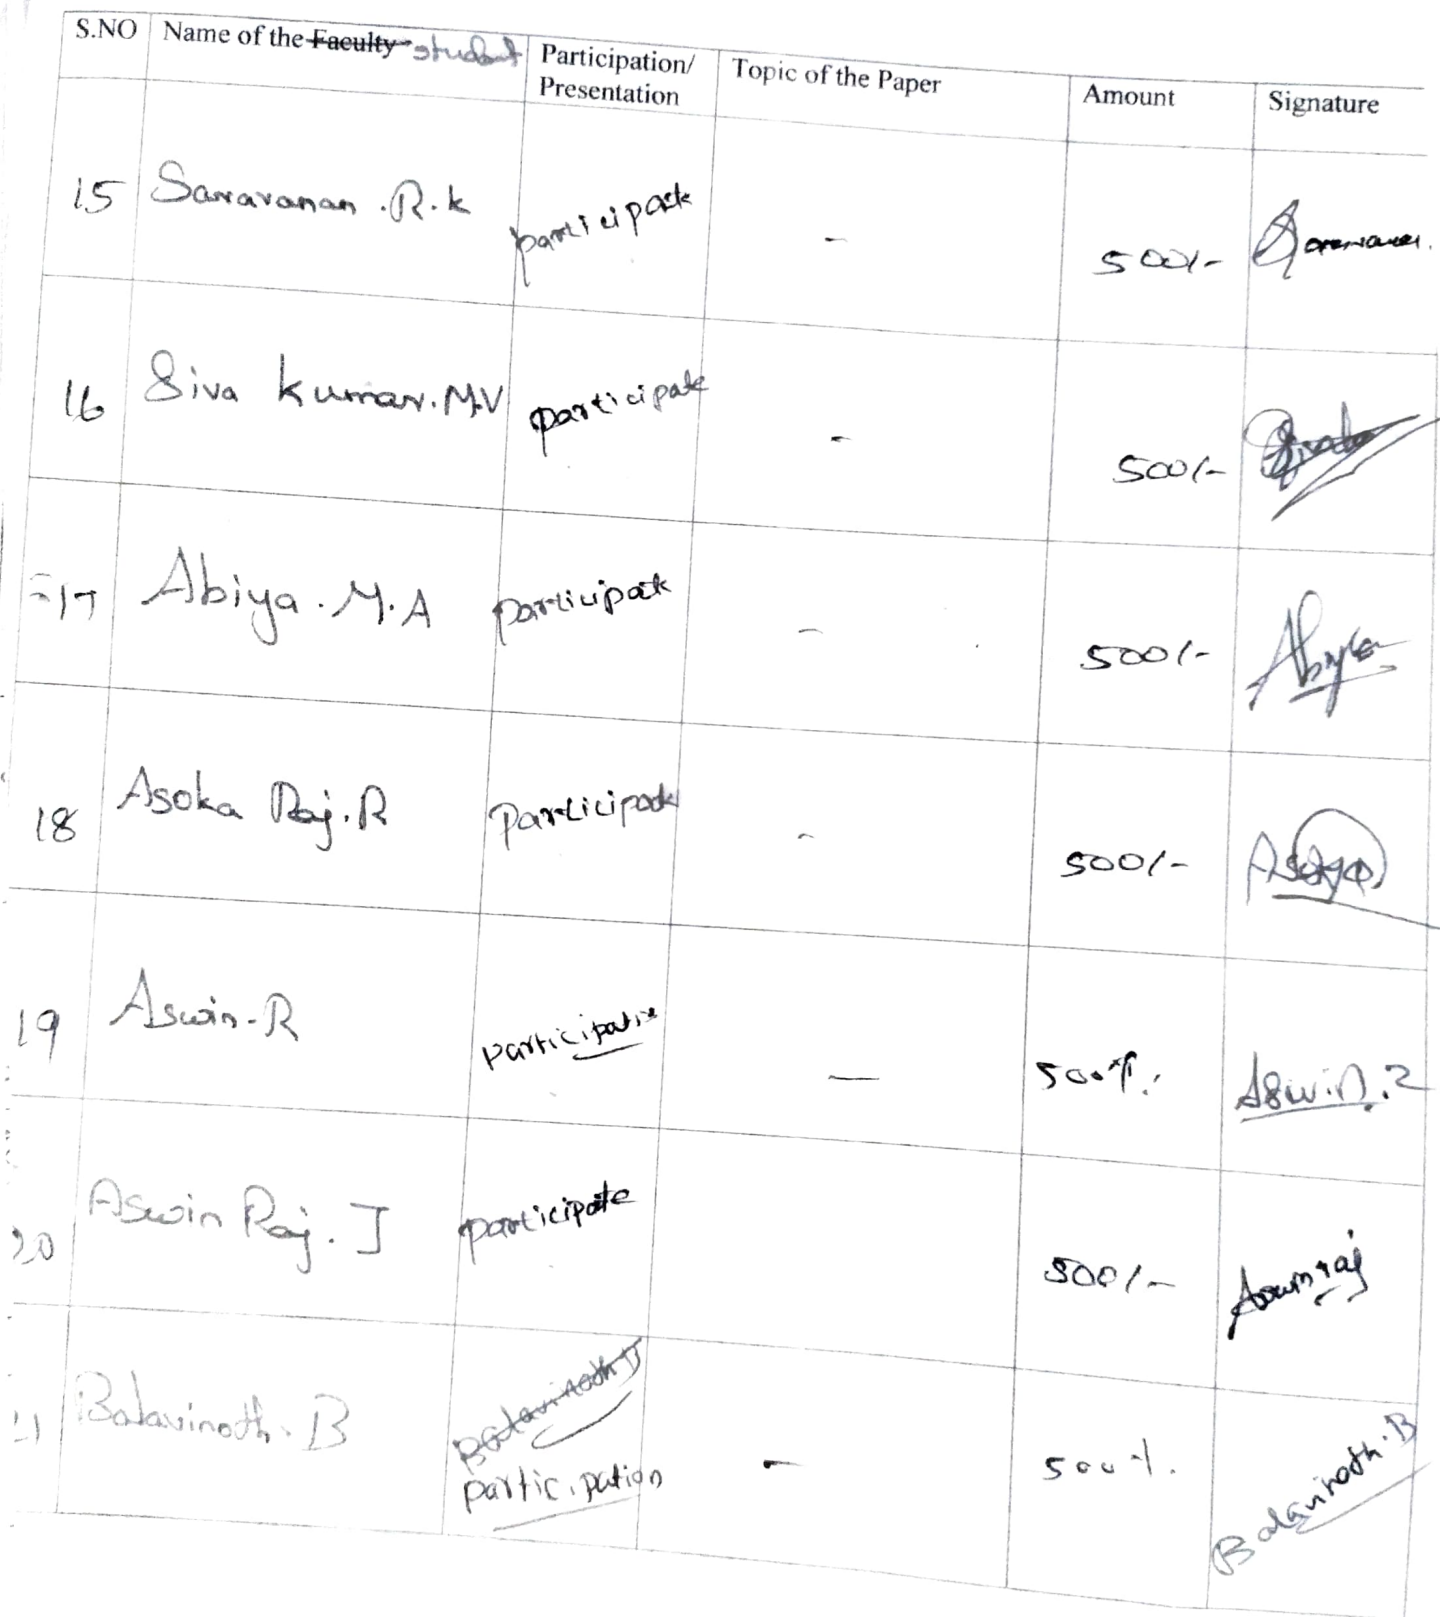 S.NO Name of the Faculty student Participation/ Presentation Topic of the Paper Amount Signature
15 Saravanan .R.k participate - 500/- Saravanan.
16 Siva kumar.M.V participate - 500/- Siva
17 Abiya.M.A participate - 500/- Abiya
18 Asoka Raj.R Participate - 500/- Asoka
19 Aswin-R participate — 500/. Aswin.R
20 Aswin Raj. J participate 500/- Aswinraj
21 Balavinoth.B Balavinoth B
participation - 500/. Balavinoth.B